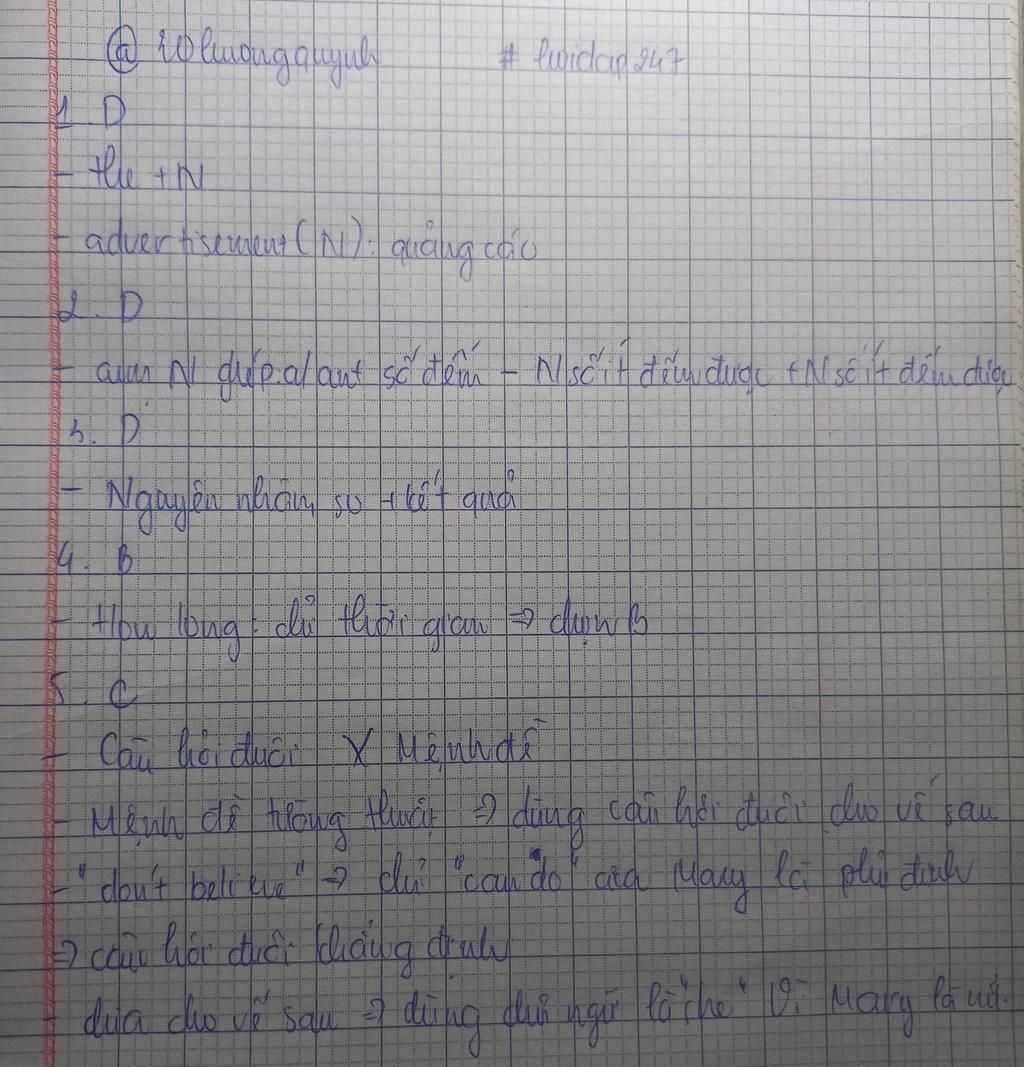 @ # hoidap247
1. D
- the + N
- advertisement (N): quảng cáo
2. D
- N ghép: a/an + số đếm - N số ít đếm được + N số ít đếm được
3. D
- Nguyên nhân, so + kết quả
4. B
- How long: chỉ thời gian ⇒ chọn B
5. C
- Câu hỏi đuôi Mệnh đề
- Mệnh đề tường thuật ⇒ dùng câu hỏi đuôi cho vế sau
- "don't believe" ⇒ chỉ "can do" của Mary là phủ định
⇒ câu hỏi đuôi khẳng định
- chia cho vế sau ⇒ dùng chủ ngữ là "he" Vì Mary là nữ.